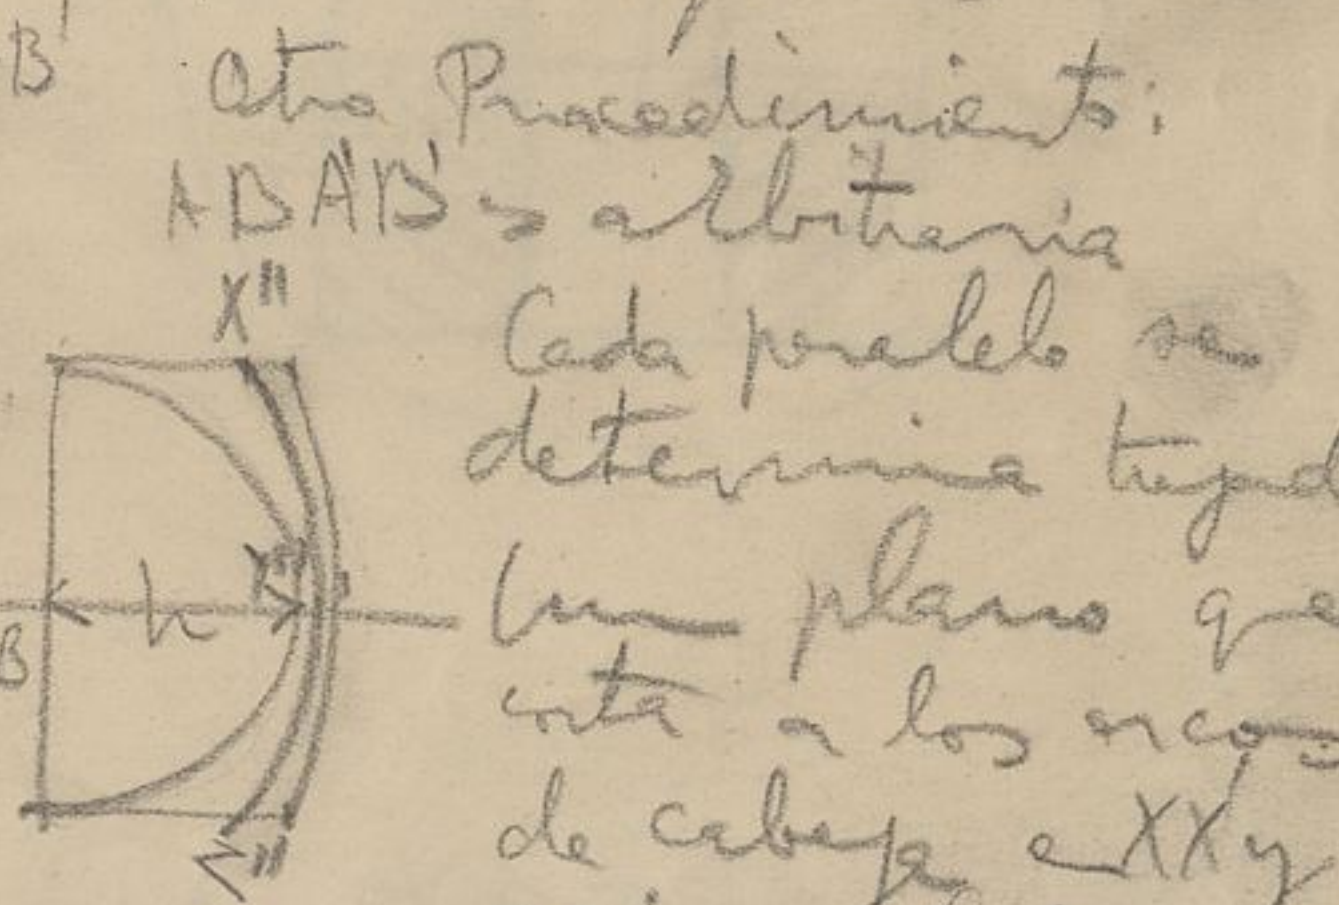 B
Otro Procedimiento:
ABA'B' > arbitraria
X"
Cada paralelo se
determina
h
B
un plano que
corta a los arcos
de cabeza en XX' y
Z"